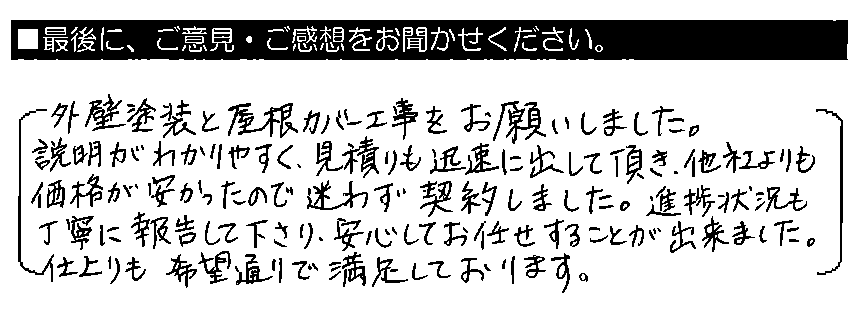 ■最後に、ご意見・ご感想をお聞かせください。
外壁塗装と屋根カバー工事をお願いしました。
説明がわかりやすく、見積りも迅速に出して頂き、他社よりも
価格が安かったので迷わず契約しました。進捗状況も
丁寧に報告して下さり、安心してお任せすることが出来ました。
仕上りも希望通りで満足しております。